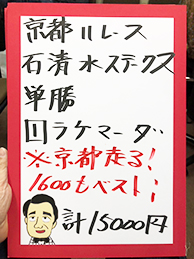 京都11レース
石清水ステークス
単勝
1ラケマーダ
※京都走る!
1600もベスト!
計15000円